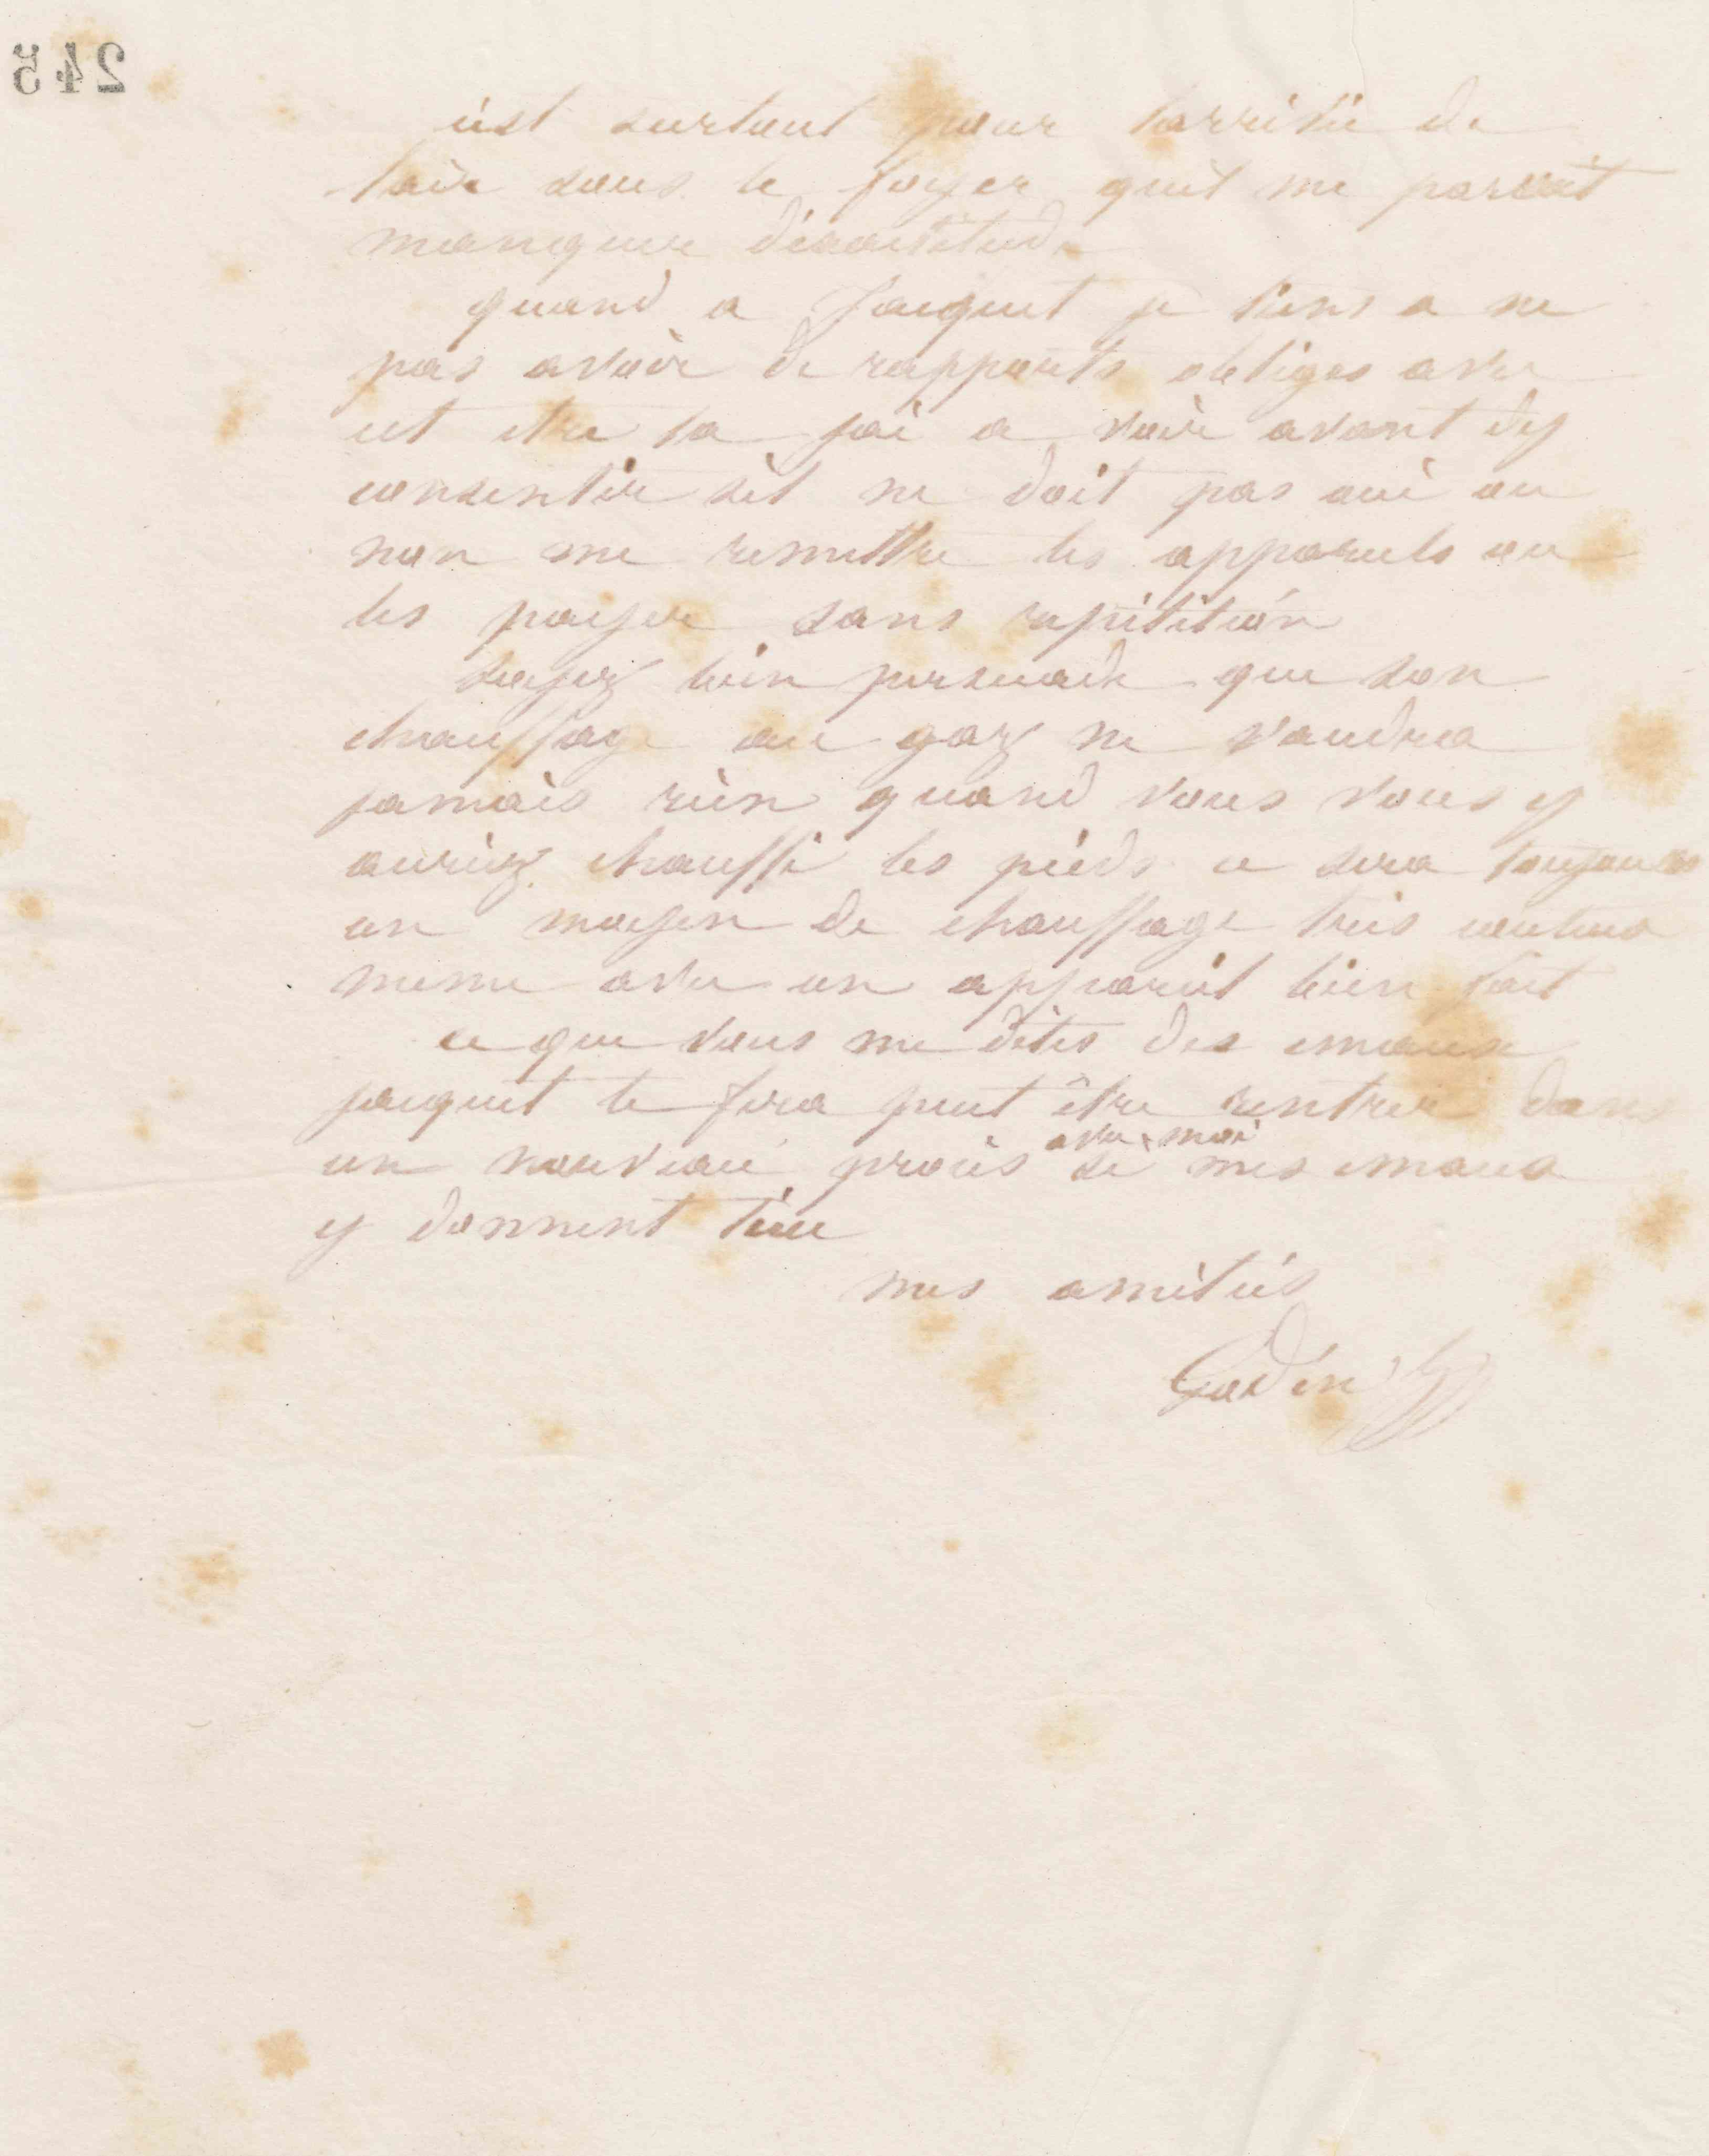 245
cest surtout pour larrivée de
lair sous le foyer quil me parait
manquer dexactitude
quand a Jacquet je tiens a ne
pas avoir de rapports obliges avec
cet etre la jai a voir avant dy
consentir sil ne doit pas oui ou
non me remettre les appareils ou
les payer sans repitition
soyez bien persuade que son
chauffage au gaz ne vaudra
jamais rien quand vous vous y
auriez chauffé les pieds ce sera toujours
un moyen de chauffage tres couteux
meme avec un appareil bien fait
ce que vous me dites des emaux
jacquet le fera peut être rentrer dans
un nouveau procès avec moi si mes emaux
y donnent lieu
mes amitiés
Godin